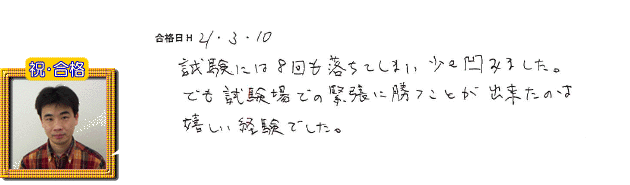 合格日 H 21・3・10
祝・合格
試験には8回も落ちてしまい少々凹みました。
でも試験場での緊張に勝つことが出来たのは
嬉しい経験でした。